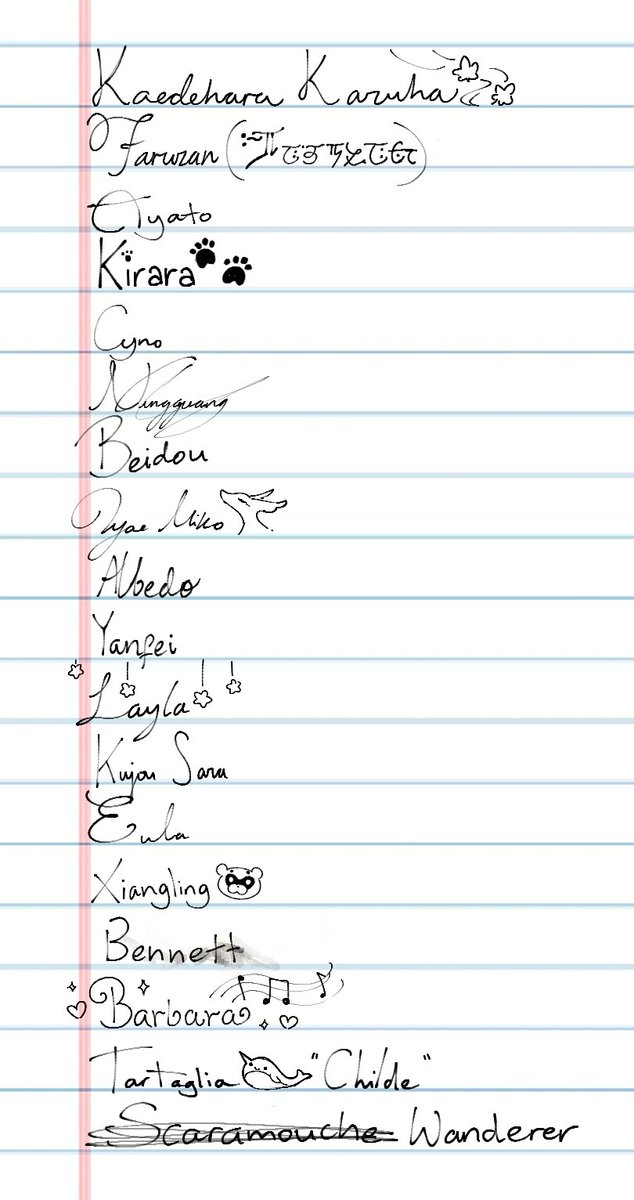 Kaedehara Kazuha
Faruzan
Ayato
Kirara
Cyno
Ningguang
Beidou
Yae Miko
Albedo
Yanfei
Layla
Kujou Sara
Eula
Xiangling
Bennett
Barbara
Tartaglia "Childe"
Scaramouche Wanderer